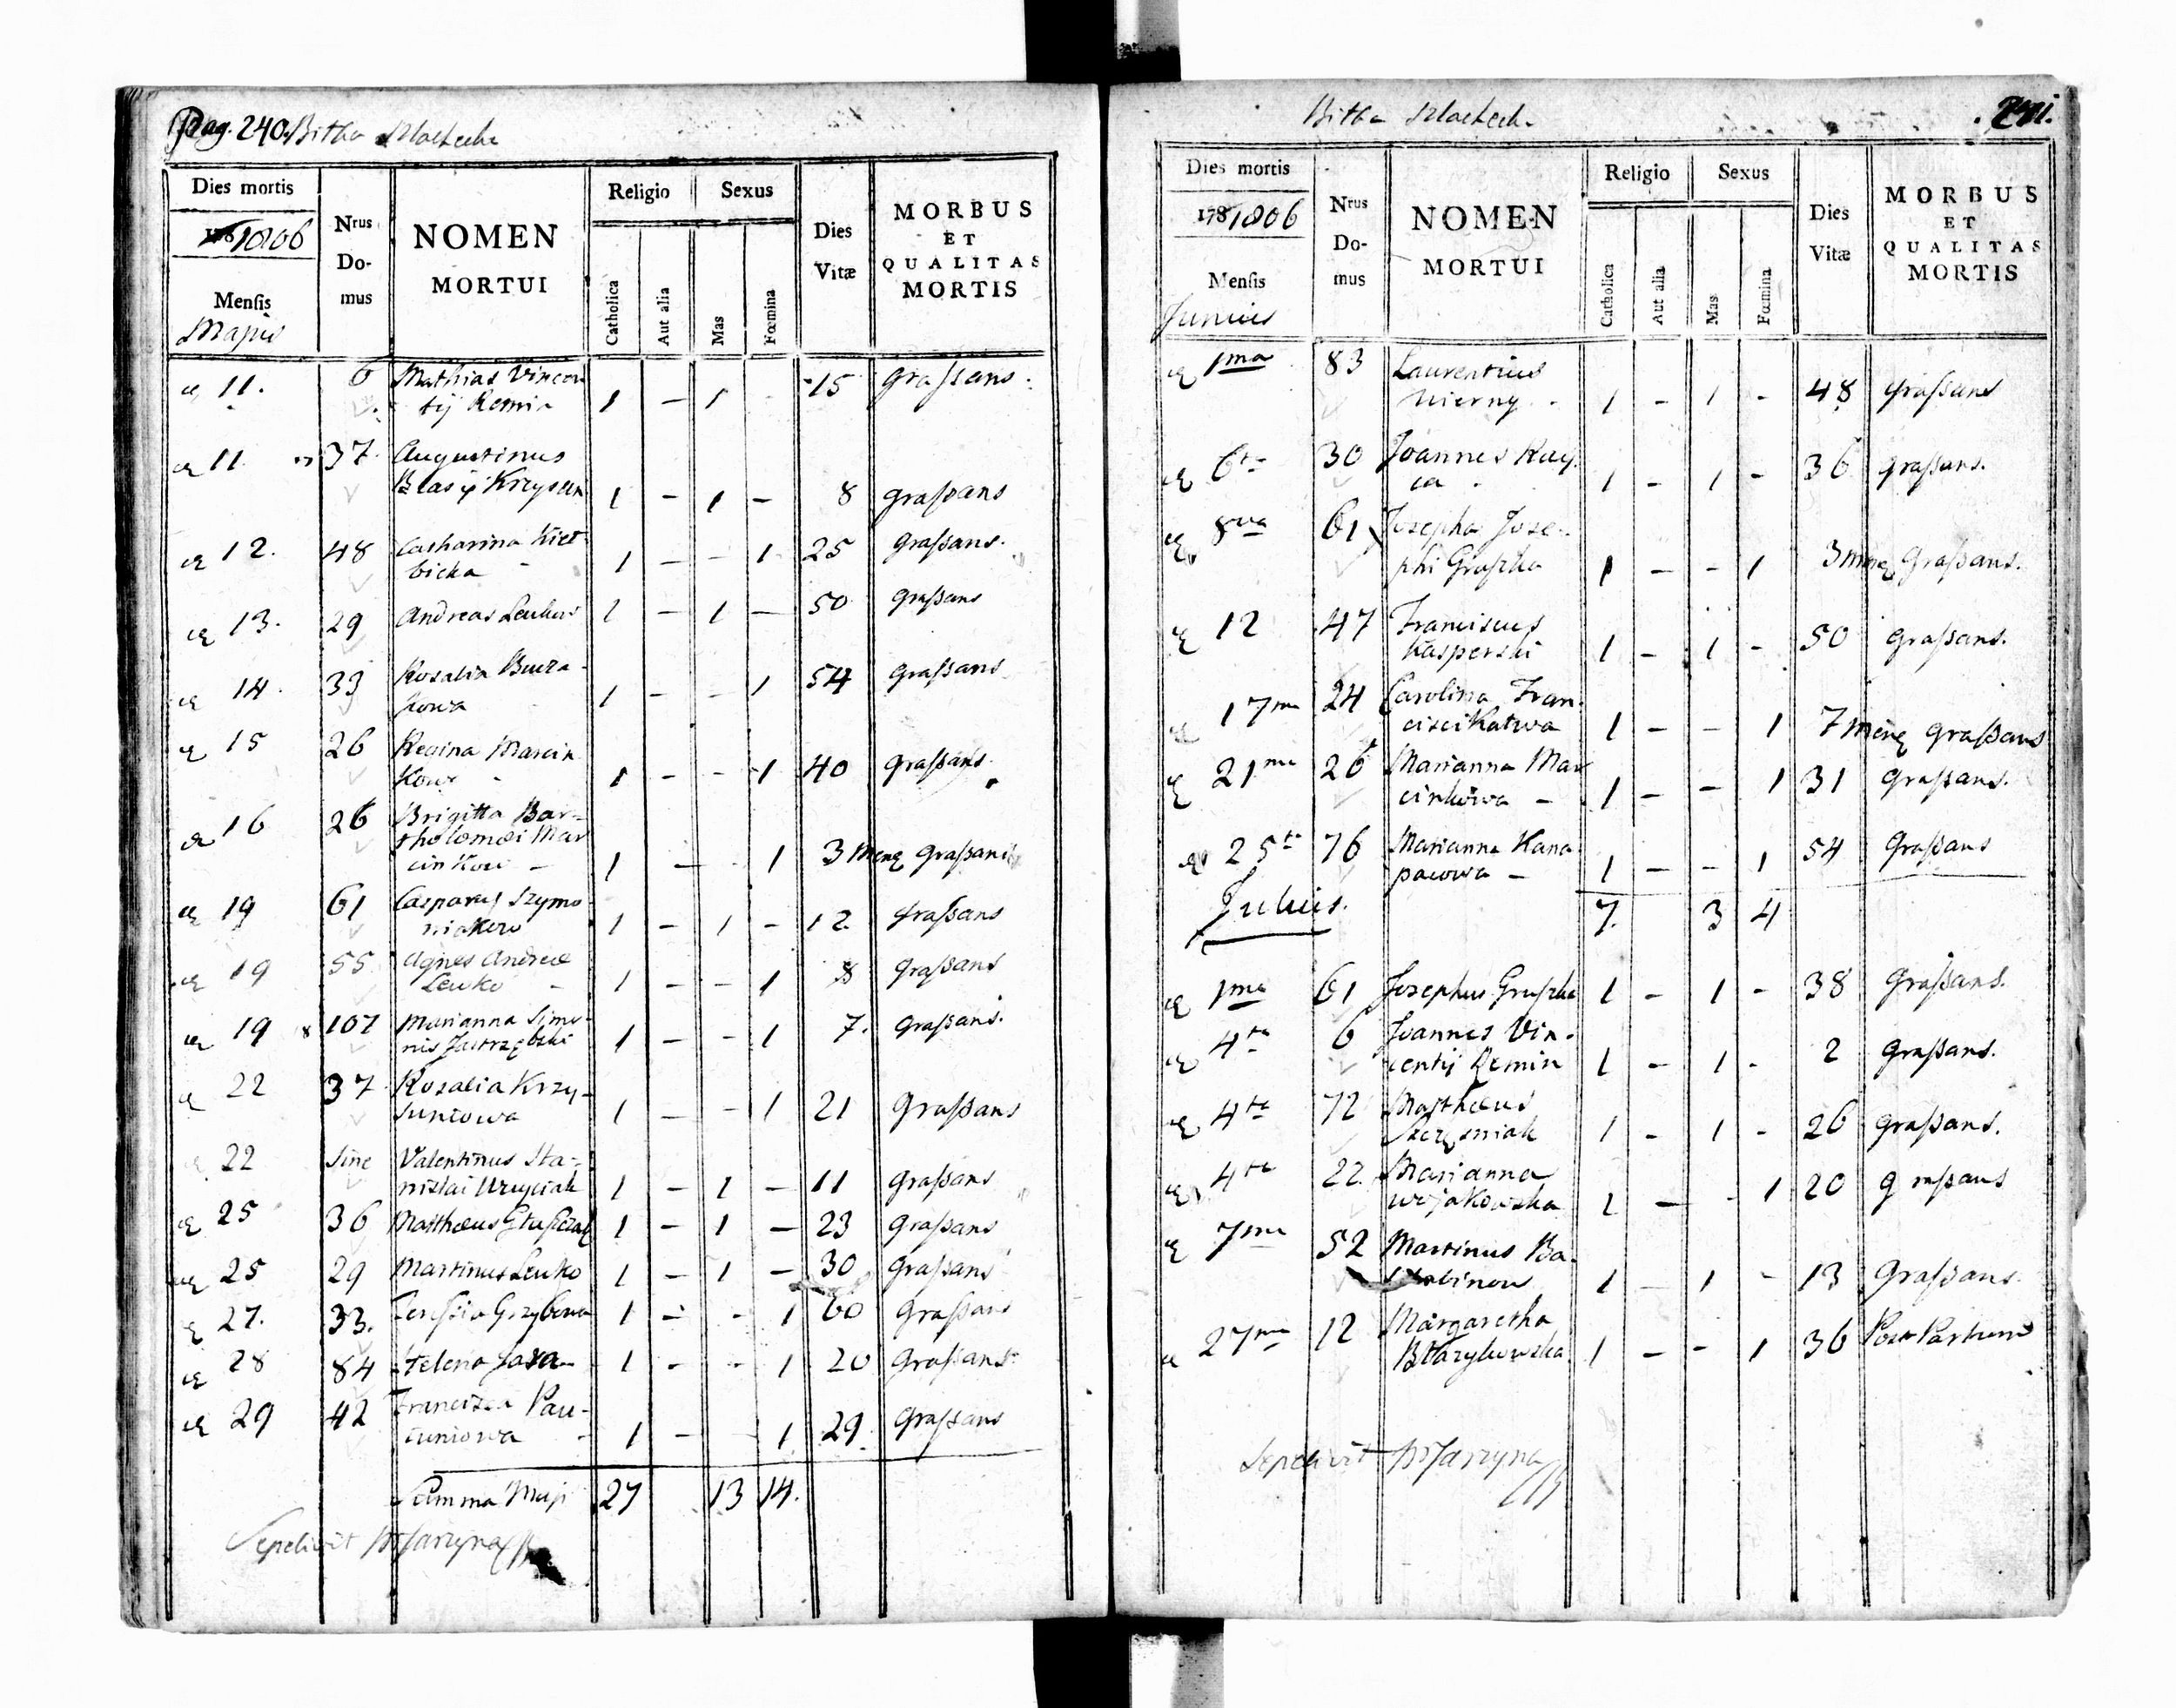 Pag. 240. Bitka Slachech.
Dies mortis
1806
Mensis
Majus
Nrus Do-mus
NOMEN MORTUI
Religio
Catholica
Aut alia
Sexus
Mas
Fœmina
Dies Vitæ
MORBUS ET QUALITAS MORTIS
11. 6 Mathias Vincen
tij Remin 1 – 1 - 15 graſsans.
11 37 Augustinus
Blasij Krzysun 1 – 1 – 8 graſsans
12. 48 Catharina Kieł
bicka 1 – – 1 25 graſsans.
13. 29 Andreas Leukow 1 – 1 – 50 graſsans
14. 33 Rosalia Bura
kowa 1 – - 1 54 graſsans
15 26 Regina Marcin
kowa - 1 - - 1 40 graſsans.
16 26 Brigitta Bar-
tholomæi Mar
cinkow – 1 – - 1 3 menz graſsans
19 61 Casparus Szymo
niakow 1 – 1 – 12 graſsans
19 55 Agnes Andreæ
Leuko - 1 - - 1 8 graſsans
19 107 Marianna Simo-
nis Jastrzębski 1 – - 1 7. graſsans.
22 37 Rosalia Krzy-
suniowa 1 – - 1 21 graſsans
22 Sine Valentinus Sta-
nislai 1 – 1 – 11 graſsans
25 36 Matthæus 1 – 1 – 23 graſsans
25 29 Martinus Leuko 1 – 1 – 30 graſsans
27. 33. Grzybowa 1 – - 1 60 graſsans
28 84 Helena 1 - - 1 20 graſsans
29 42 Francisca Pau-
luniowa 1 – - 1 29 graſsans
Summa Maji 27 13 14.
Sepelivit Jarzyna
Bitka Slachech.
Dies mortis
1781806
Mensis
Junius
Nrus Do-mus
NOMEN MORTUI
Religio
Catholica
Aut alia
Sexus
Mas
Fœmina
Dies Vitæ
MORBUS ET QUALITAS MORTIS
1ma 83 Laurentius
Mierny - 1 – 1 - 48 graſsans
6ta 30 Joannes Kuy
ca - 1 – 1 – 36 graſsans.
8va 61 Josepha Jose-
phi Gruſzka 1 – - 1 3 menz graſsans.
12 47 Franciscus
Kasperski 1 – 1 - 50 graſsans.
17ma 24 Carolina Fran
cisci Katwa 1 – – 1 7 menz graſsans
21ma 26 Marianna Mar
cinkowa – 1 – – 1 31 graſsans.
25ta 76 Marianna Kana
pacowa – 1 – – 1 54 graſsans
7. 3 4
Julius.
1ma 61 Josephus Gruſzka 1 – 1 - 38 graſsans.
4ta 6 Joannes Vin-
centij Remin 1 – 1 - 2 graſsans.
4ta 72 Matthæus
Szczęsniak 1 – 1 - 26 graſsans.
4ta 22 Marianna
Wojakowska 1 — - 1 20 graſsans
7ma 52 Martinus Ba-
1 – 1 - 13 graſsans.
27ma 12 Margaretha
Błazykowska 1 – - 1 36 Post Partum
Sepelivit Jarzyna